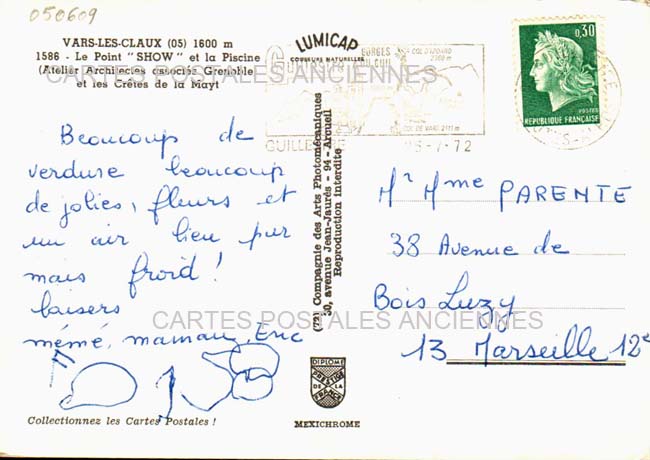 050609
VARS-LES-CLAUX (05) 1600 m
1586 - Le Point "SHOW" et la Piscine
(Atelier Architectes associés Grenoble
et les Crêtes de la Mayt
CARTES POSTALES ANCIENNES
LUMICAP
COULEURS NATURELLES
GORGES
DU GUIL
COL D'IZOARD
2360 m
COL DE VARS 2111 m
GUILLE
-7-72
0,30
POSTES
REPUBLIQUE FRANÇAISE
Beaucoup de
verdure beaucoup
de jolies, fleurs et
un air bien pur
mais froid !
baisers
mémé, maman, Eric
(72) Compagnie des Arts Photomécaniques
30, avenue Jean-Jaurès - 94 - Arcueil
Reproduction interdite
Mr Mme PARENTE
38 Avenue de
Bois Luzy
13 Marseille 12e
CARTES POSTALES ANCIENNES
DIPLOME
PRESTIGE
DE LA
FRANCE
Collectionnez les Cartes Postales !
MEXICHROME